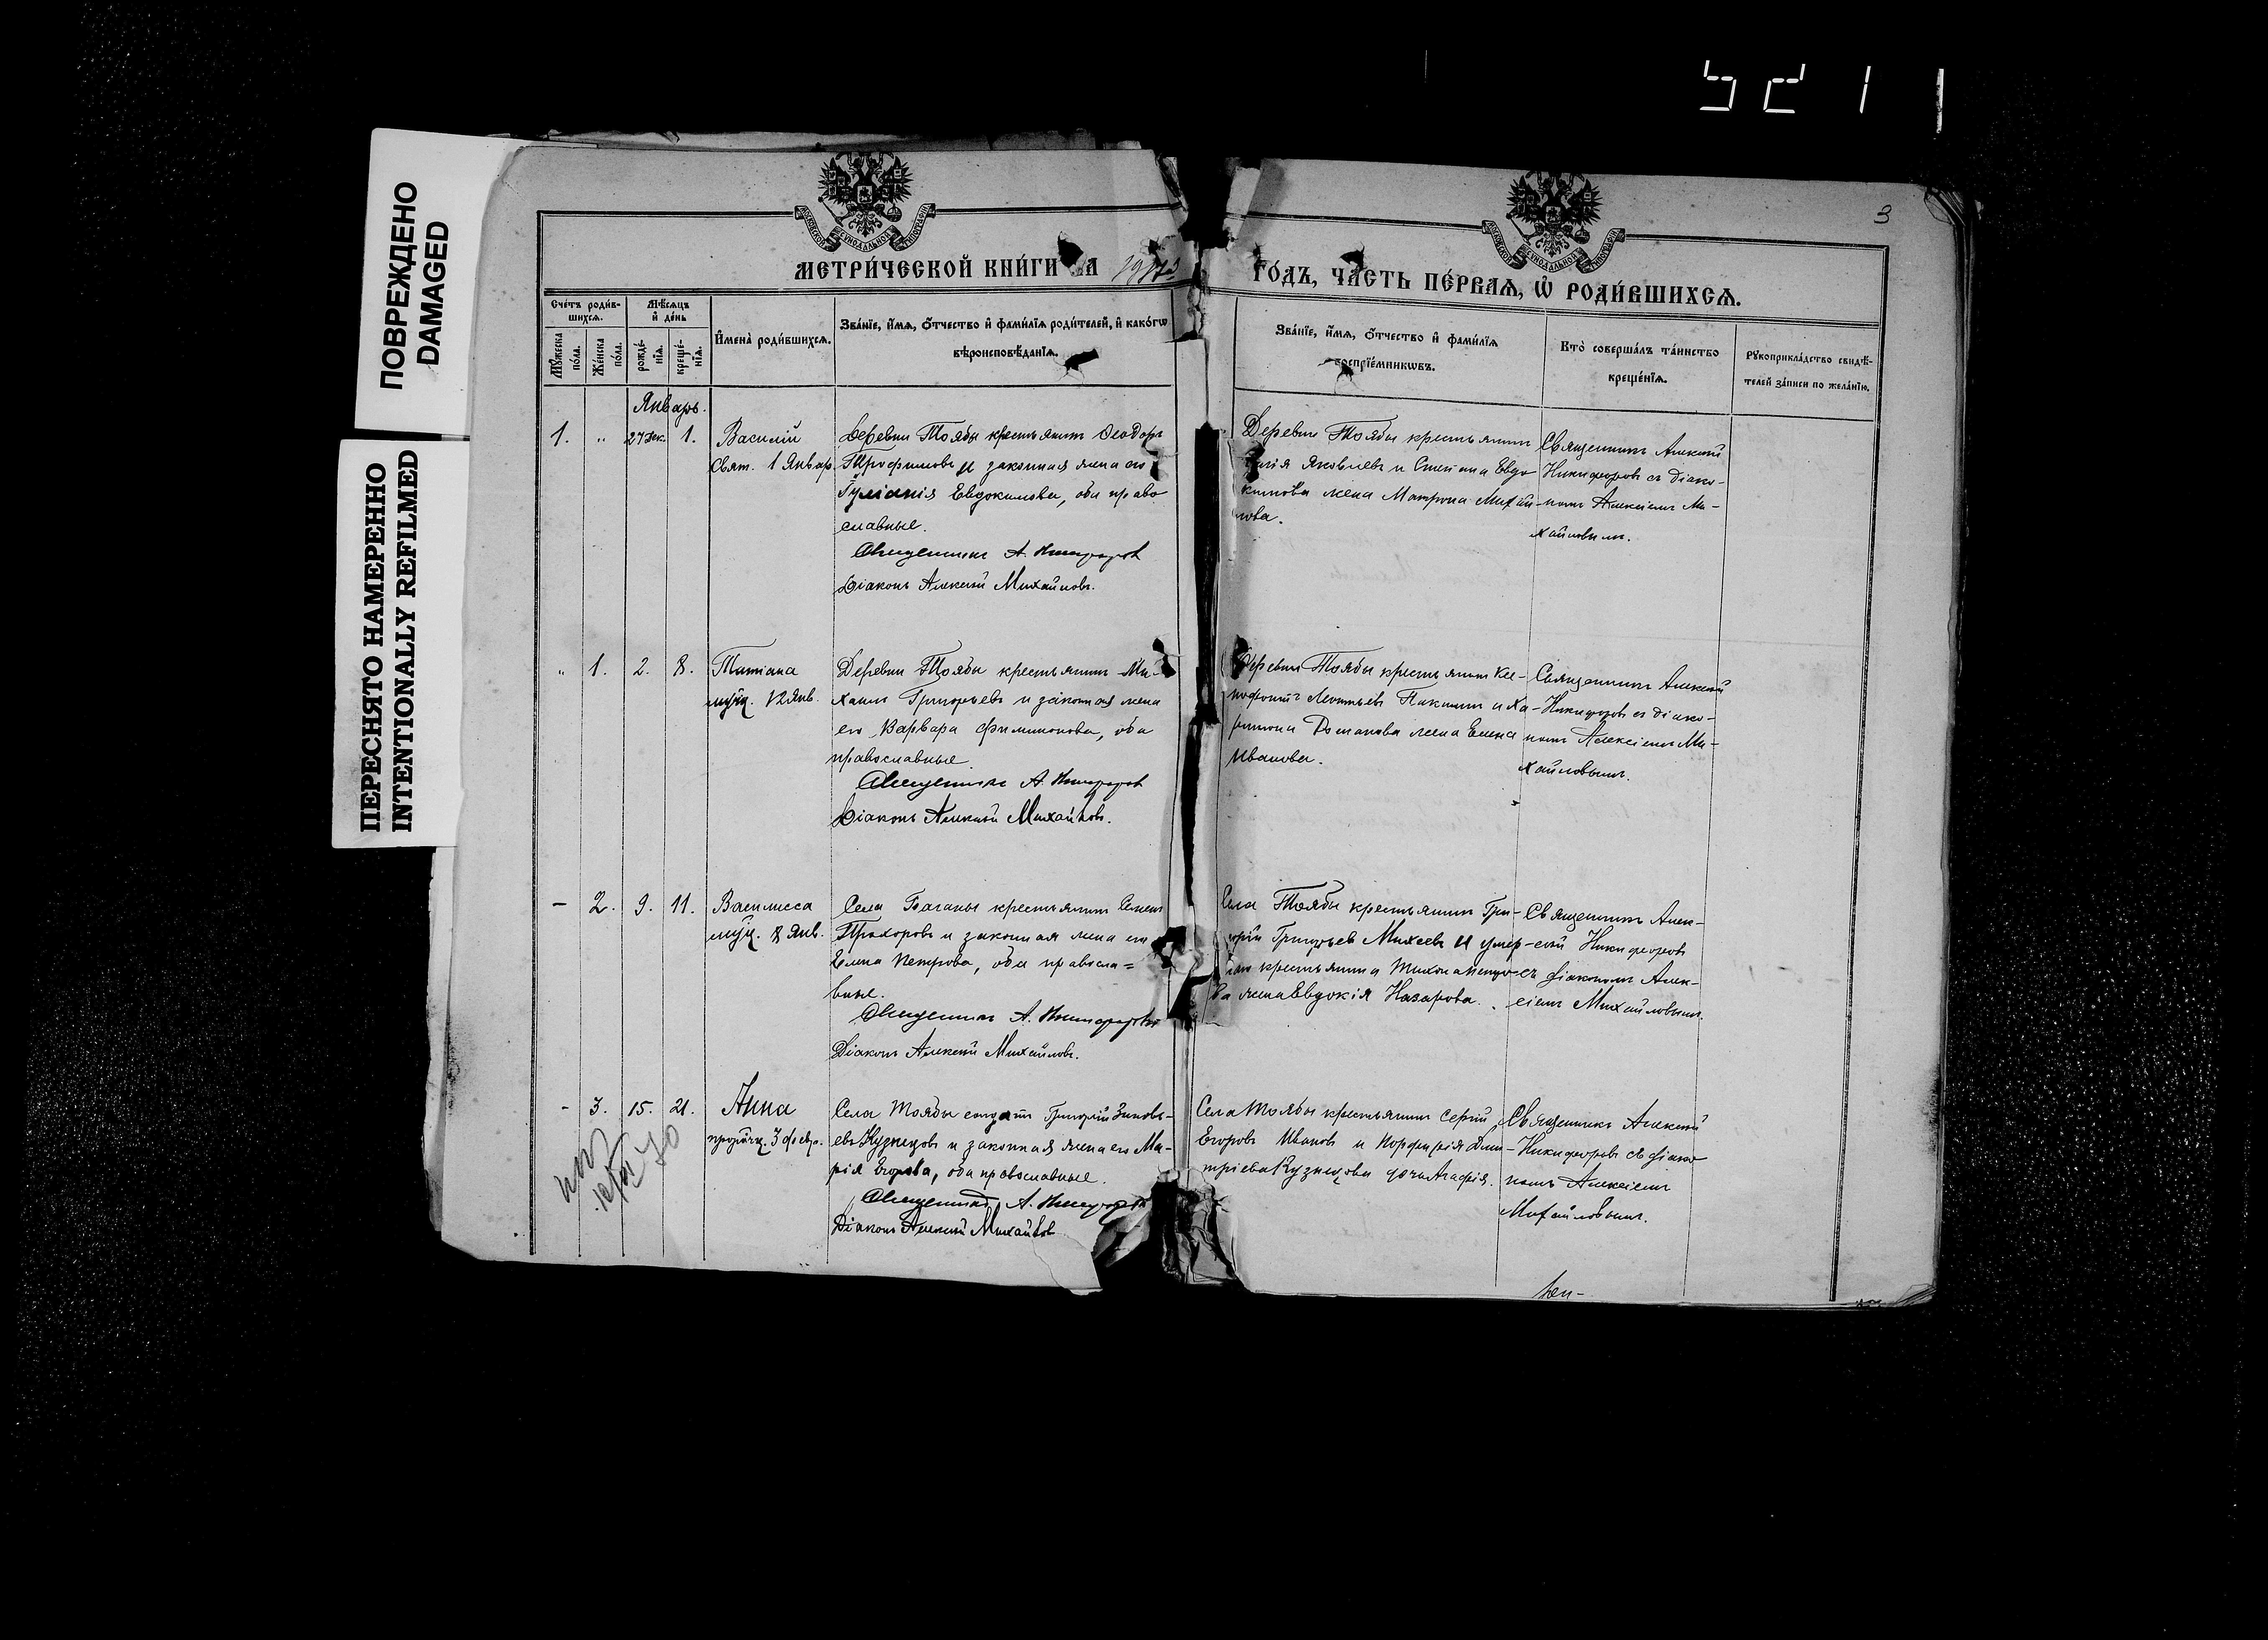 5211
ПОВРЕЖДЕНО
DAMAGED
ПЕРЕСНЯТО НАМЕРЕННО
INTENTIONALLY REFILMED
3
МОСКОВСКОЙ СѴНОДАЛЬНОЙ ТИПОГРАФІИ
МОСКОВСКОЙ СѴНОДАЛЬНОЙ ТИПОГРАФІИ
МЕТРИ́ЧЕСКОЙ КНИ́ГИ
ГО́ДЪ, ЧА́СТЬ ПЕ́РВАЯ, Ѡ҆ РОДИ́ВШИХСЯ.
Сче́тъ роди́в-
шихся.
Мѣ́сяцъ
и҆ де́нь
Мꙋ́жеска
по́ла.
Же́нска
по́ла.
рожде́-
нїя.
креще́-
нїя.
И҆мена̀ роди́вшихся.
Зва́нїе, и҆́мя, ѻ҆́тчество и҆ фами́лїя роди́телей, и҆ како́гѡ
вѣ̑роисповѣ́данїя.
Зва́нїе, и҆́мя, ѻ҆́тчество и҆ фами́лїя
воспрїе́мникѡвъ.
Кто̀ соверша́лъ та́инство
креще́нїя.
Рꙋкоприкла́дство свидѣ́-
телей за́писи по жела́нїю.
Январь.
1. " 27 дек. 1. Василій
Свят. 1 Январ.
Деревни Тоябы крестьянинъ Ѳеодоръ
Трофимовъ и законная жена его
Іуліанія Евдокимова, оба право
славные.
Священникъ А. Никифоров
Діаконъ Алексѣй Михайловъ.
Деревни Тоябы крестьянинъ
Яковлевъ и Степана Евдо
кимова жена Матрона Михай-
лова.
Священникъ Алексѣй
Никифоровъ съ діако-
номъ Алексѣемъ Ми-
хайловымъ.
" 1. 2. 8. Татіана
муч. 12 Янв.
Деревни Тоябы крестьянинъ Ми-
хаилъ Григорьевъ и законная жена
его Варвара Филимонова, оба
православные.
Священникъ А. Никифоров
Діаконъ Алексѣй Михайлов.
Деревни Тоябы крестьянинъ Ксе-
нофонтъ Леонтьевъ и Ха-
ритона Романова жена Елена
Иванова.
Священникъ Алексѣй
Никифоровъ съ діако-
номъ Алексѣемъ Ми-
хайловымъ.
- 2. 9. 11. Василисса
муч. 8 Янв.
Села Баганы крестьянинъ Семенъ
Прохоровъ и законная жена его
Елена Петрова, оба правосла=
вные.
Священникъ А. Никифоровъ
Діаконъ Алексѣй Михайловъ.
Села Тоябы крестьянинъ Гри-
горій Григорьев Михеевъ и умер-
шаго крестьянина Тихона Петро-
ва жена Евдокія Назарова.
Священникъ Алек-
сѣй Никифоровъ
съ діакономъ Алек-
сѣемъ Михайловымъ.
- 3. 15. 21. Анна
пророчц. 3 февр.
Села Тоябы солдатъ Григорій Зиновь-
евъ Кузнецовъ и законная жена его Ма-
рія Егорова, оба православные.
Священникъ А. Никифоров
Діаконъ Алексѣй Михайлов
Села Тоябы крестьянинъ Сергій
Егоровъ Ивановъ и Порфирія Дми-
тріева Кузнецова дочь Агафія.
Священникъ Алексѣй
Никифоровъ съ діако
номъ Алексѣемъ
Михайловымъ.